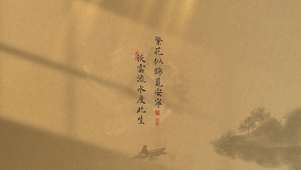 繁花似锦觅安宁
淡雲流水度此生